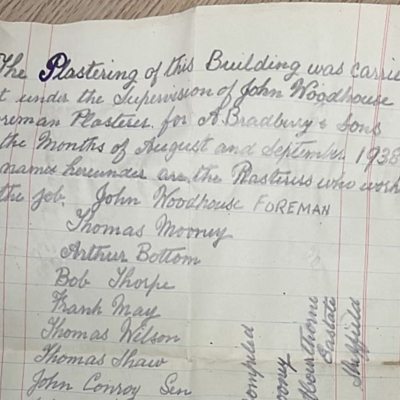 The Plastering of this Building was carrie
t under the Supervision of John Woodhouse
oreman Plasterer for A. Bradbury & Sons
the Months of August and September 1938
names hereunder are the Plasterers who work
the job. John Woodhouse FOREMAN
Thomas Mooney
Arthur Bottom
Bob Thorpe
Frank May
Thomas Wilson
Thomas Shaw
John Conroy Sen
ompiled
ooney
Estate
Sheffield